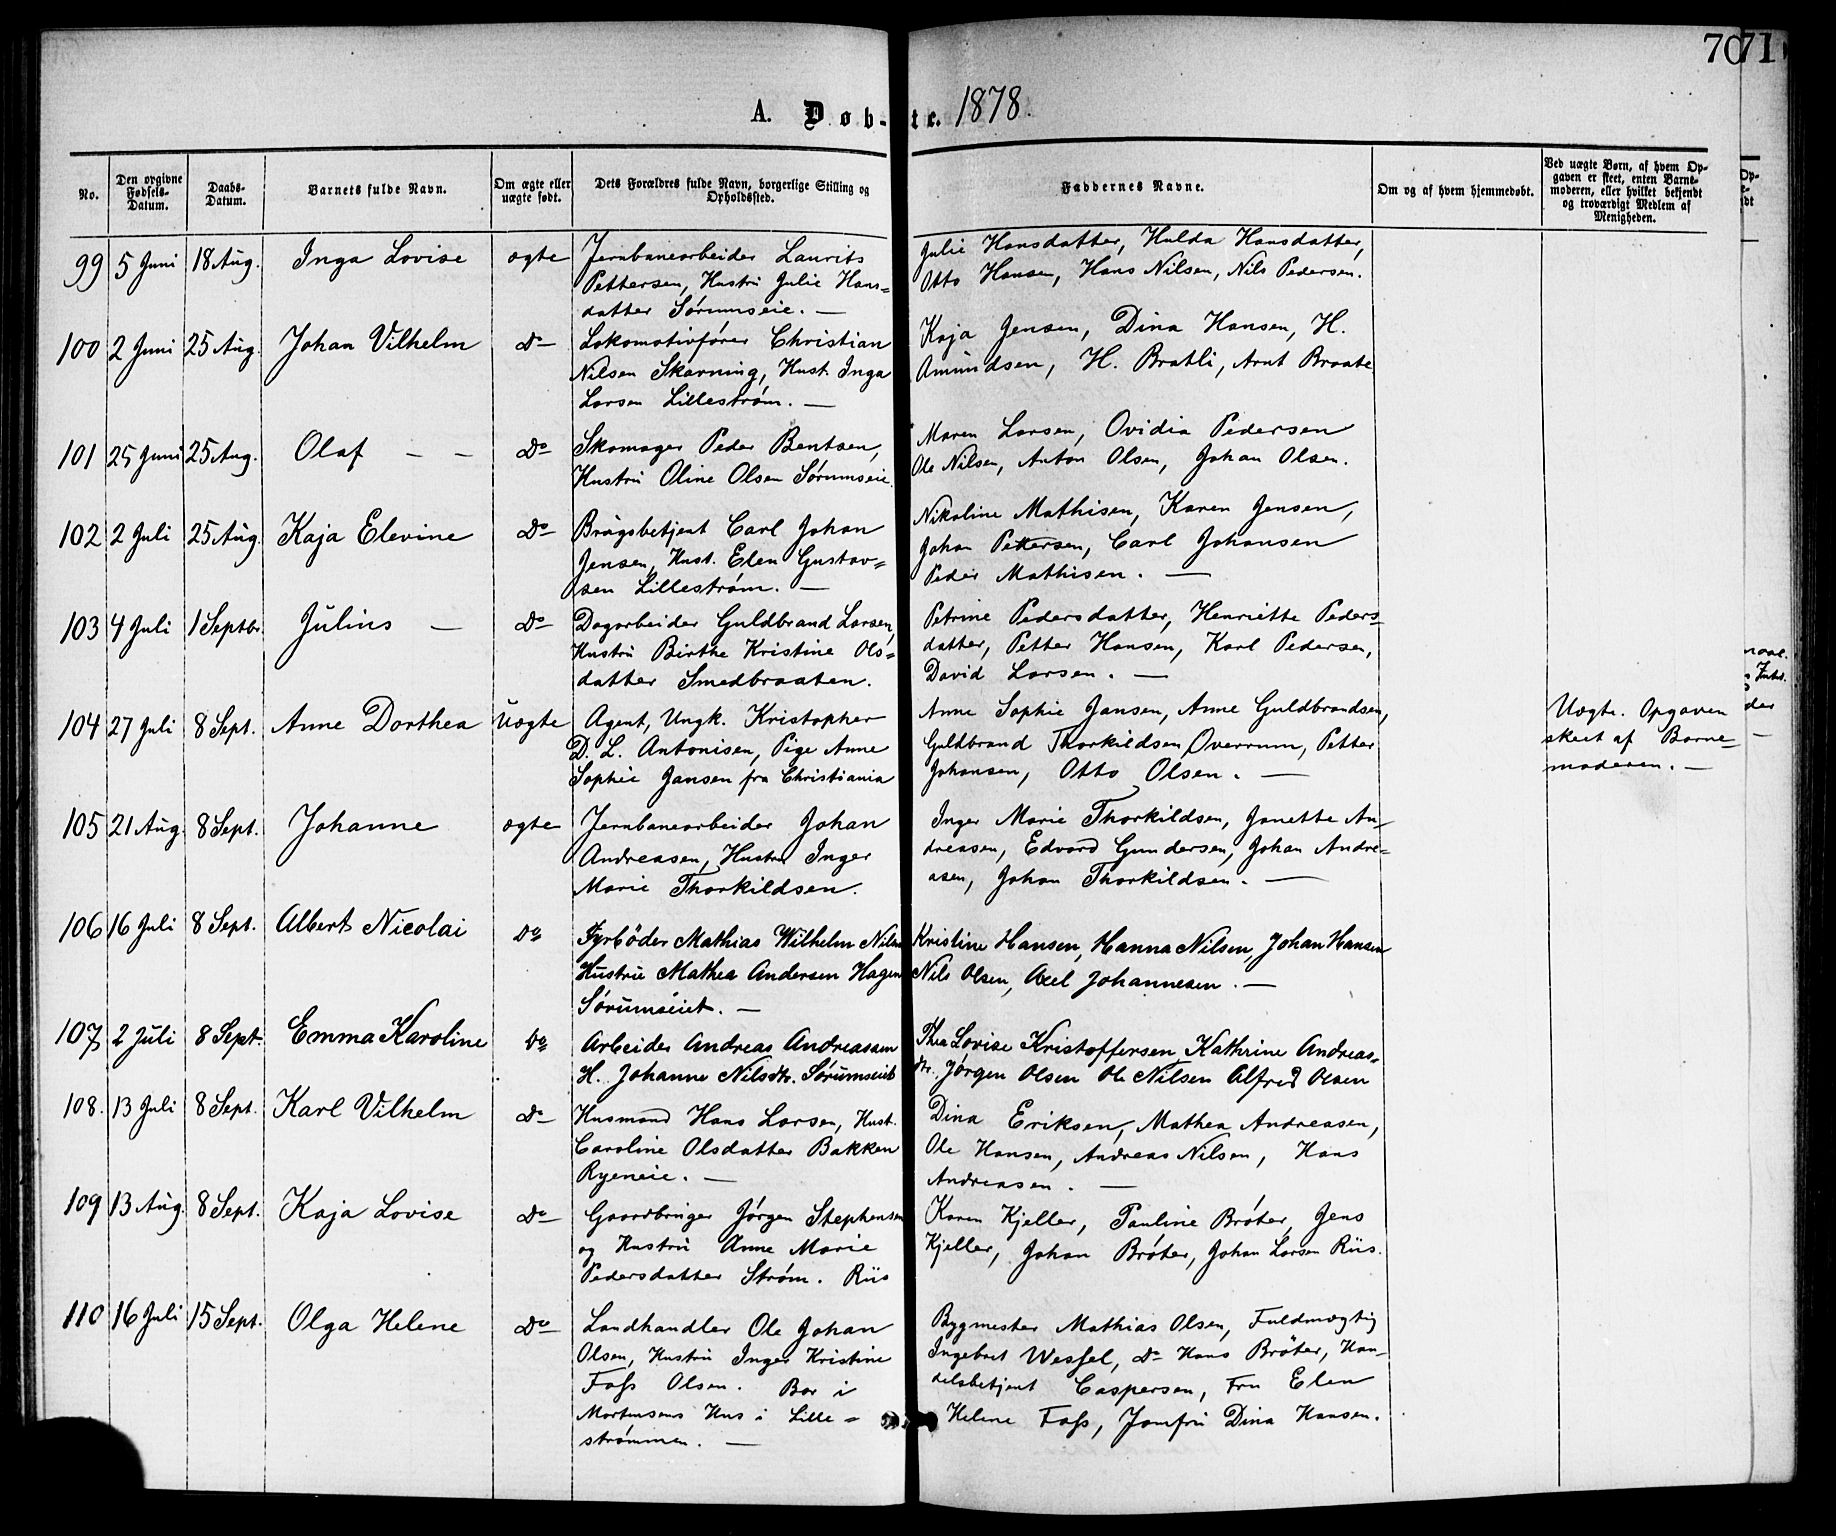 70 71
A. Døbte. 1878.
No.
Den opgivne Fødsels-Datum.
Daabs-Datum.
Barnets fulde Navn.
Om ægte eller uægte født.
Dets Forældres fulde Navn, borgerlige Stilling og Opholdssted.
Faddernes Navne.
Om og af hvem hjemmedøbt.
Ved uægte Børn, af hvem Opgaven er skeet, enten Barnemoderen, eller hvilket bekjendt og troværdigt Medlem af Menigheden.
99 5 Juni 18 Aug. Inga Lovise ægte Jernbanearbeider Laurits
Pettersen, Hustru Julie Hans=
datter Sørumseie. —
Julie Hansdatter, Hulda Hansdatter,
Otto Hansen, Hans Nilsen, Nils Pedersen.
100 2 Juni 25 Aug. Johan Vilhelm Do Lokomotivfører Christian
Nilsen Skarning, Hust. Inga
Larsen Lillestrøm. —
Kaja Jensen, Dina Hansen, H.
Amundsen, H. Bratli, Arnt Braate
101 25 Juni 25 Aug. Olaf — — Do Skomager Peder Bentsen,
Hustru Oline Olsen Sørumseie.
Maren Larsen, Ovidia Pedersen
Ole Nilsen, Anton Olsen, Johan Olsen.
102 2 Juli 25 Aug. Kaja Elevine Do Brugsbetjent Carl Johan
Jensen, Hust. Elen Gustav=
sen Lillestrøm. —
Nikoline Mathisen, Karen Jensen,
Johan Pettersen, Carl Johansen
Peder Mathisen. —
103 4 Juli 1 Septbr. Julius — Do Dagarbeider Guldbrand Larsen,
Hustru Birthe Kristine Ols=
datter Smedbraaten.
Petrine Pedersdatter, Henriette Peders=
datter, Petter Hansen, Karl Pedersen,
David Larsen. —
104 27 Juli 8 Sept. Anne Dorthea Uægte Agent, Ungk. Kristopher
D. L. Antonisen, Pige Anne
Sophie Jansen fra Christiania
Anne Sophie Jansen, Anne Guldbrandsen,
Guldbrand Thorkildsen Overrum, Petter
Johansen, Otto Olsen. —
Uægte. Opgaven
skeet af Barne=
moderen. —
105 21 Aug. 8 Sept. Johanne ægte Jernbanearbeider Johan
Andreasen, Hustru Inger
Marie Thorkildsen.
Inger Marie Thorkildsen, Janette An=
dreasen, Edvard Gundersen, Johan Andre=
asen, Johan Thorkildsen. —
106 16 Juli 8 Sept. Albert Nicolai Do Fyrbøder Mathias Wilhelm Nilsen
Hustrue Mathea Andersen Hagen
Sørumseiet. —
Kristine Hansen, Hanna Nilsen, Johan Hansen
Nils Olsen, Axel Johannesen. —
107 2 Juli 8 Sept. Emma Karoline Do Arbeider Andreas Andreassen
H. Johanne Nilsdtr. Sørumseiet
Thea Lovise Kristoffersen Kathrine Andreas=
dtr. Jørgen Olsen Ole Nilsen Alfred Olsen
108. 13 Juli 8 Sept. Karl Vilhelm Do Husmand Hans Larsen, Hust.
Caroline Olsdatter Bakken
Ryeneie. —
Dina Eriksen, Mathea Andreasen,
Ole Hansen, Andreas Nilsen, Hans
Andreasen. —
109 13 Aug. 8 Sept. Kaja Lovise Do Gaardbruger Jørgen Stephensen
og Hustru Anne Marie
Pedersdatter Strøm. Riis
Karen Kjeller, Pauline Brøter, Jens
Kjeller, Johan Brøter, Johan Larsen Riis.
110 16 Juli 15 Sept. Olga Helene Do Landhandler Ole Johan
Olsen, Hustru Inger Kristine
Foss Olsen. Bor i
Mortensens Hus i Lille=
strømmen. —
Bygmester Mathias Olsen, Fuldmægtig
Ingebret Wessel, Do Hans Brøter, Han=
delsbetjent Caspersen, Fru Elen
Helene Foss, Jomfru Dina Hansen.